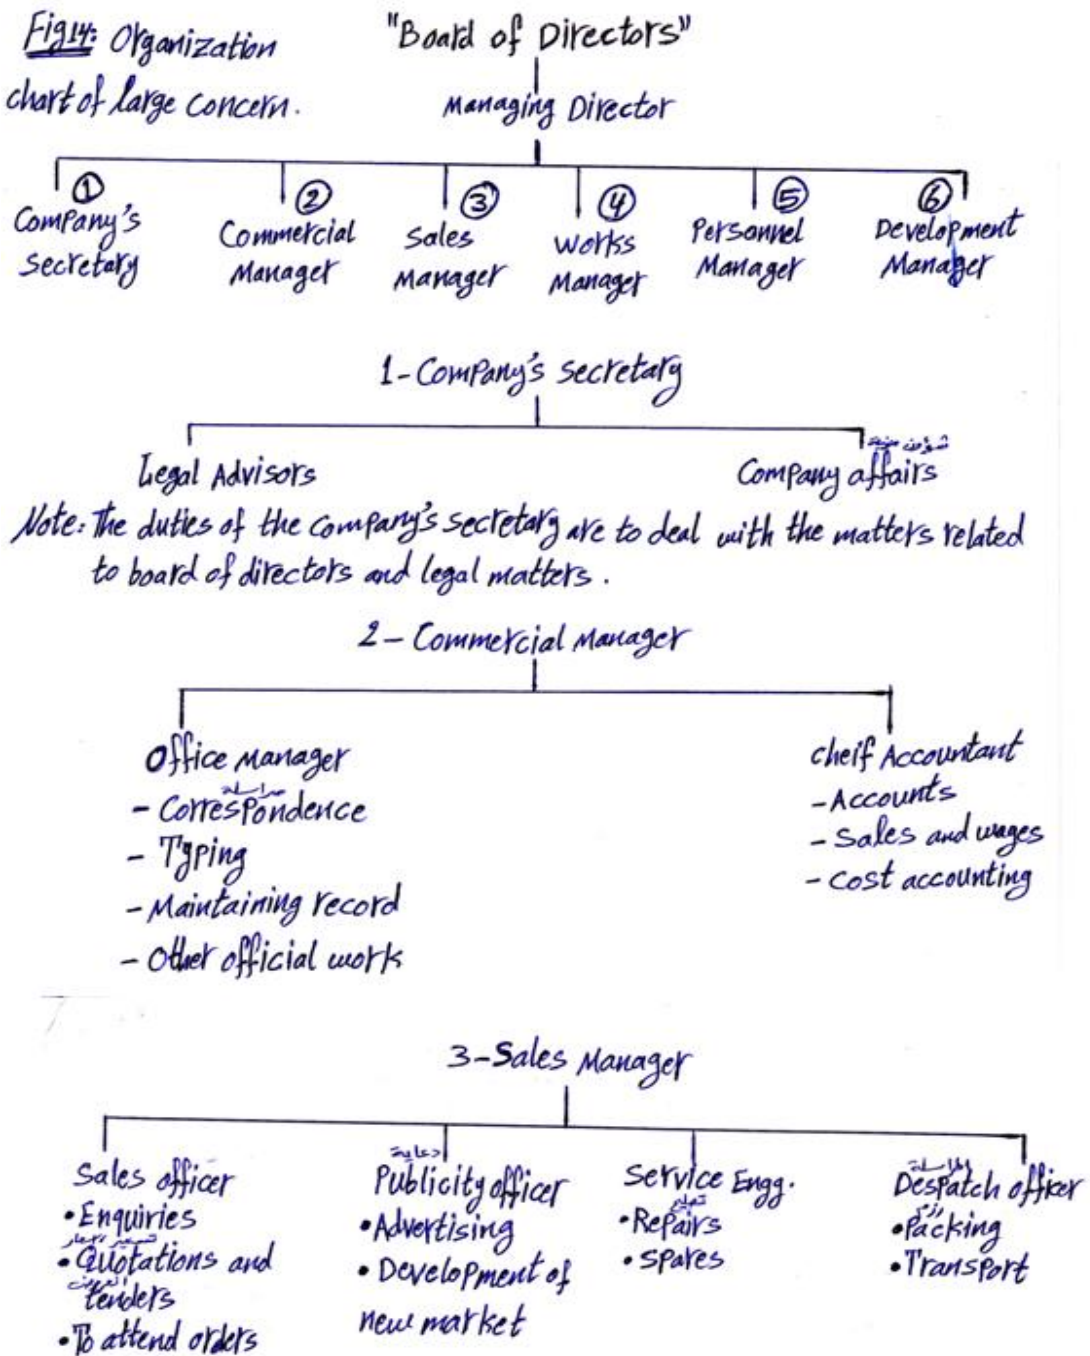 Fig14: Organization
chart of large concern.
"Board of Directors"
Managing Director
①
Company's
secretary
②
Commercial
Manager
③
Sales
Manager
④
Works
Manager
⑤
Personnel
Manager
⑥
Development
Manager
1-Company's secretary
Legal Advisors
شؤون
Company affairs
Note: The duties of the company's secretary are to deal with the matters related
to board of directors and legal matters.
2- Commercial Manager
Office Manager
مراسلة
- Correspondence
- Typing
- Maintaining record
- Other official work
cheif Accountant
- Accounts
- Sales and wages
- Cost accounting
3-Sales Manager
Sales officer
• Enquiries
تسعير
• Quotations and
tenders
• To attend orders
دعاية
Publicity officer
• Advertising
• Development of
new market
Service Engg.
• Repairs
• spares
Despatch officer
• Packing
• Transport